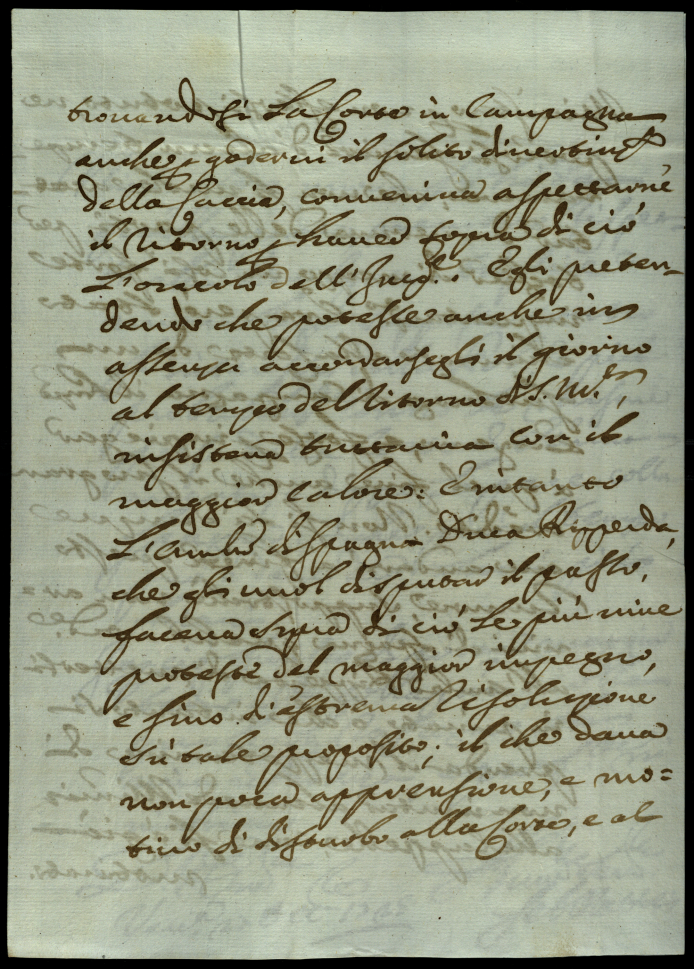 trouandosi La Corte in Campagna
anche p goderui il solito diuertim.to
della Caccia, conueniua aspettarne
il ritorno p hauer sopra di ciò
L'oracolo dell' Imp.e. Egli preten-
dendo che potesse anche in
assenza accordarsegli il giorno
al tempo del ritorno di S. M.,
insisteua tuttauia con il
maggior calore: E intanto
L'Amb.r di Spagna Duca Ripperda,
che gli uuol disputar il posto,
faceua sopra di ciò le più uiue
proteste del maggior impegno,
e sino d'estrema risoluzione
sù tale proposito; il che daua
non poca apprensione, e mo=
tiuo di disturbo alla Corte, e al